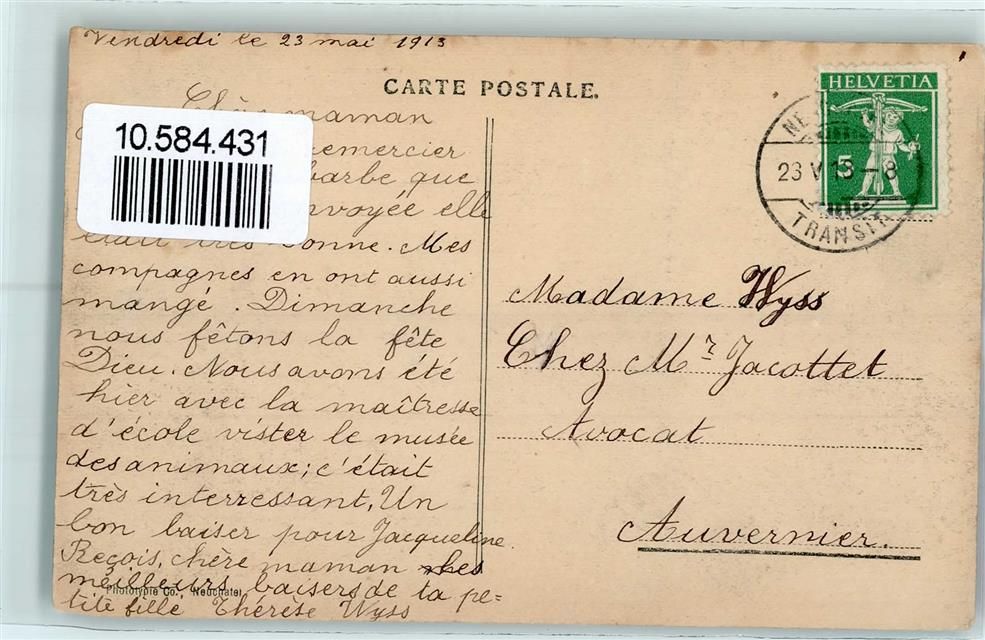 Vendredi le 23 mai 1913
CARTE POSTALE.
HELVETIA
5
23 V 13 – 8
TRANSIT
10.584.431
Chère maman
remercier
barbe que
envoyée elle
était très bonne. Mes
compagnes en ont aussi
mangé. Dimanche
nous fêtons la fête
Dieu. Nous avons été
hier avec la maîtresse
d'école vister le musée
des animaux; c'était
très interressant, Un
bon baiser pour Jacqueline
Reçois, chère maman les
meilleurs baisers de ta pe=
tite fille Thérèse Wyss
Phototypie Co., Neuchatel
Madame Wyss
Chez Mr Jacottet
Avocat
Auvernier.